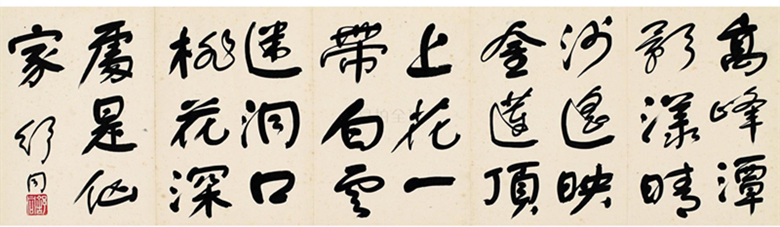 高峰潭
影漾晴
沙遙映
金蓮頂
上花一
帶白雲
迷洞口
桃花深
處是仙
家 舒同